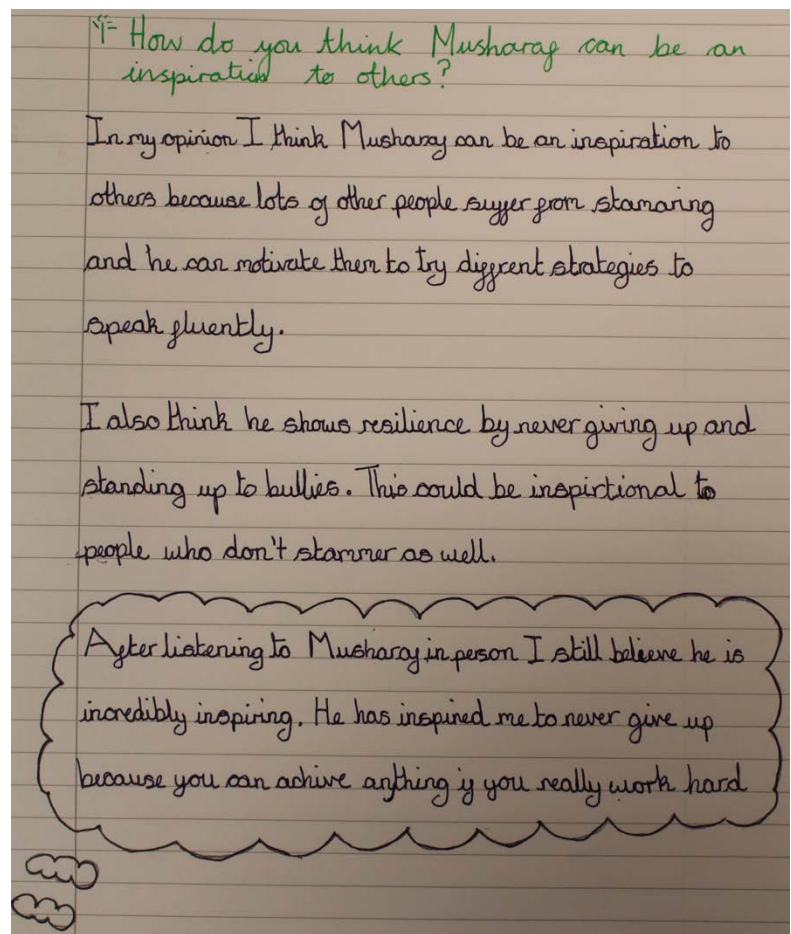 How do you think Musharaf can be an
inspiration to others?
In my opinion I think Musharaf can be an inspiration to
others because lots of other people suffer from stamaring
and he can motivate them to try diffrent strategies to
speak fluently.
I also think he shows resilience by never giving up and
standing up to bullies. This could be inspirtional to
people who don't stammer as well.
After listening to Musharaf in person I still believe he is
incredibly inspiring. He has inspired me to never give up
because you can achive anything if you really work hard